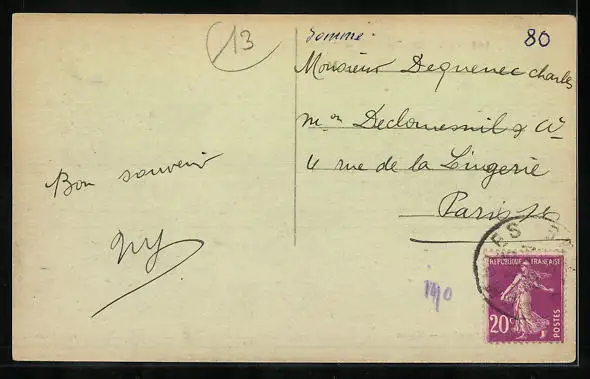 13
Somme
80
Monsieur Dequenec Charles
Mon & Cie
4 rue de la Lingerie
Paris 1er
Bon souvenir
RÉPUBLIQUE FRANÇAISE
20c
POSTES